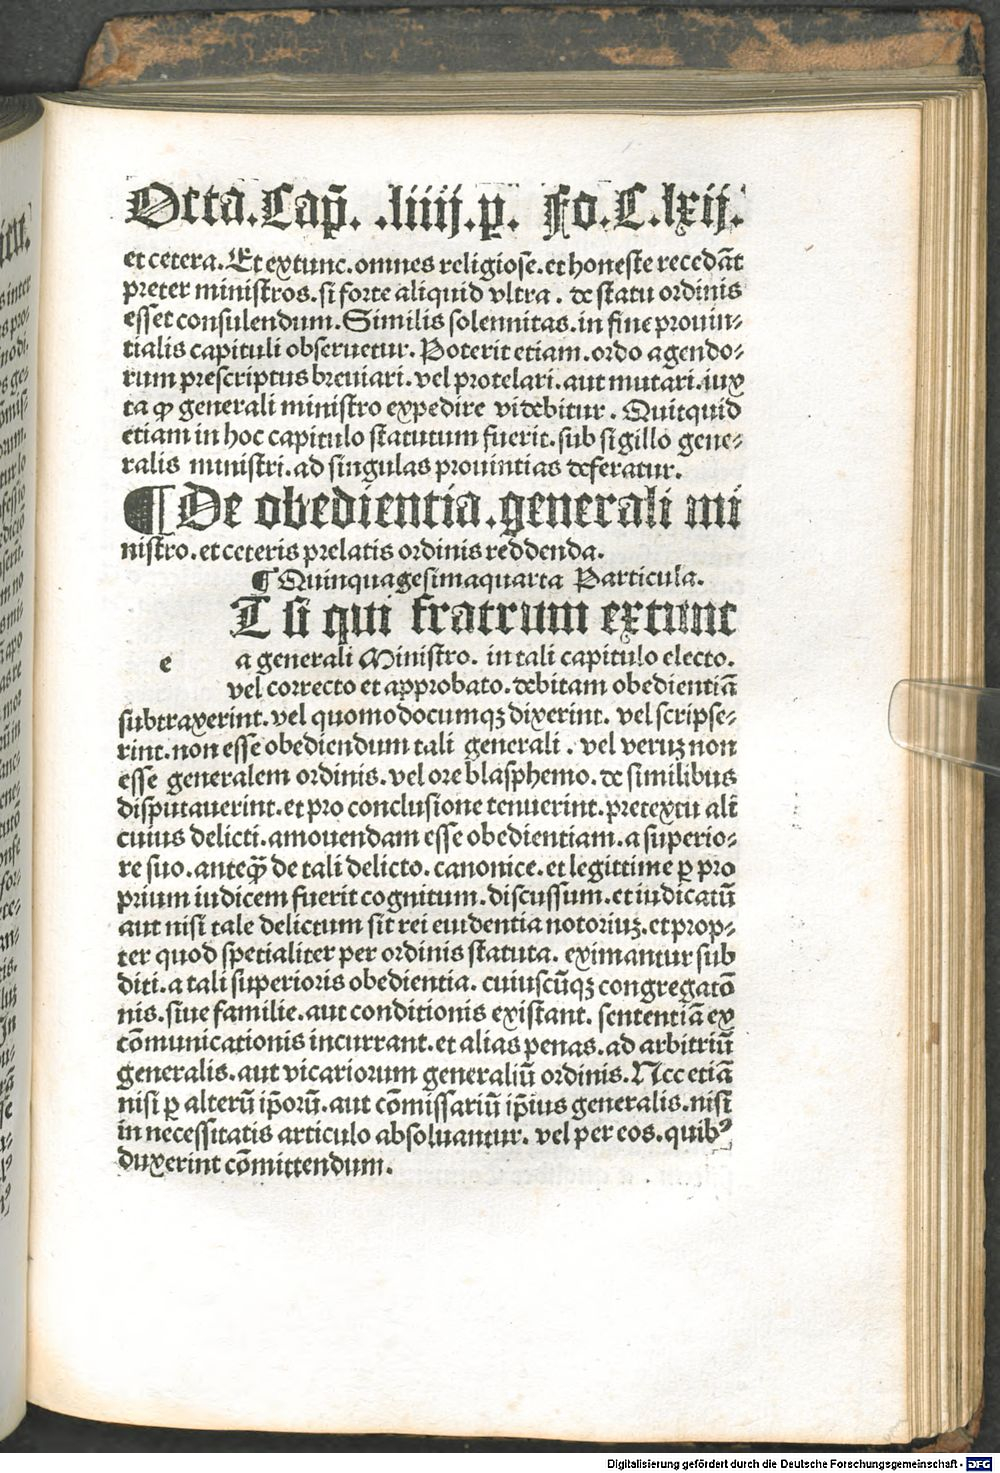 Octa.Cap̄. .liiij.p. Fo.C.lxij.
et cetera.Et extunc.omnes religiose.et honeste recedāt
preter ministros.si forte aliquid vltra. de statu ordinis
esset consulendum.Similis solennitas.in fine prouin-
tialis capituli obseruetur.Poterit etiam.ordo agendo-
rum prescriptus breuiari.vel protelari.aut mutari.iux
ta ꝙ generali ministro expedire videbitur. Quitquid
etiam in hoc capitulo statutum fuerit.sub sigillo gene-
ralis ministri.ad singulas prouintias deferatur.
¶ De obedientia.generali mi
nistro.et ceteris prelatis ordinis reddenda.
¶ Quinquagesimaquarta Particula.
T si qui fratrum extunc
e a generali Ministro. in tali capitulo electo.
vel correcto et approbato.debitam obedientiā
subtraxerint.vel quomodocumqꝫ dixerint. vel scripse-
rint.non esse obediendum tali generali. vel veruꝫ non
esse generalem ordinis.vel ore blasphemo.de similibus
disputauerint.et pro conclusione tenuerint.pretextu ali
cuius delicti.amouendam esse obedientiam.a superio-
re suo.anteꝙ̄ de tali delicto.canonice.et legittime ꝑ pro
prium iudicem fuerit cognitum.discussum.et iudicatū
aut nisi tale delictum sit rei euidentia notoriuꝫ.et prop-
ter quod spetialiter per ordinis statuta. eximantur sub
diti.a tali superioris obedientia. cuiuscūqꝫ congregatō
nis.siue familie.aut conditionis existant. sententiā ex
cōmunicationis incurrant.et alias penas.ad arbitriū
generalis.aut vicariorum generaliū ordinis.Nec etiā
nisi ꝑ alterū ip̄orū.aut cōmissariū ip̄ius generalis.nisi
in necessitatis articulo absoluantur. vel per eos.quibꝰ
duxerint cōmittendum.
Digitalisierung gefördert durch die Deutsche Forschungsgemeinschaft - DFG